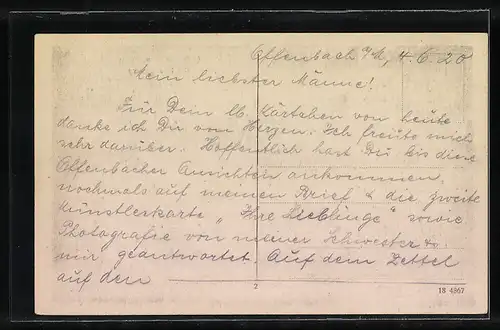 Offenbach a/M, 4.6.20
Mein liebster Männe!
Für Dein lb. Kärtchen von heute
danke ich Dir von Herzen. Ich freute mich
sehr darüber. Hoffentlich hast Du, bis diese
Offenbacher Ansichten ankommen,
nochmals auf meinen Brief & die zweite
Künstlerkarte „Ihre Lieblinge“ sowie
Photografie von meiner Schwester &
mir geantwortet. Auf dem Zettel
auf den
2
18 4867